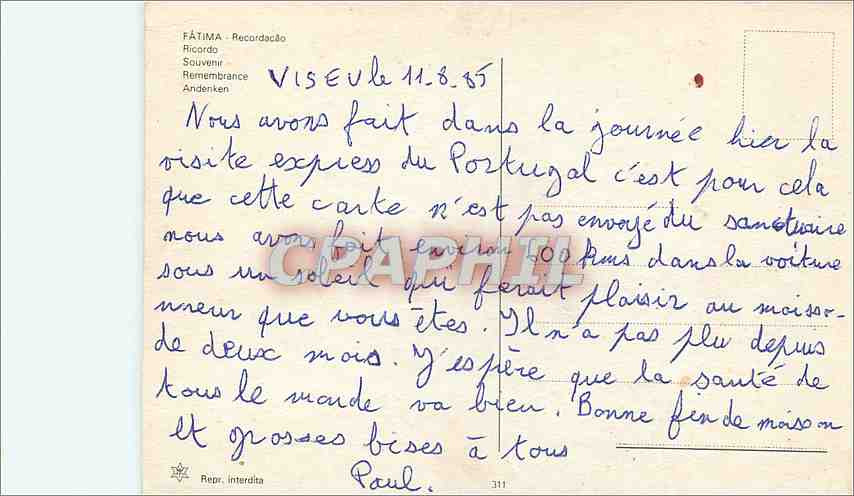 FÁTIMA - Recordacão
Ricordo
Souvenir
Remembrance
Andenken
VISEU le 11.8.85
Nous avons fait dans la journée hier la
visite express du Portugal c'est pour cela
que cette carte n'est pas envoyé du sanctuaire
nous avons fait environ 600 kms dans la voiture
sous un soleil qui ferait plaisir au moisso-
nneur que vous êtes. Il n'a pas plu depuis
de deux mois. J'espère que la santé de
tous le monde va bien. Bonne fin de moisson
et grosses bises à tous
Paul.
CPAPHIL
Repr. interdita
311